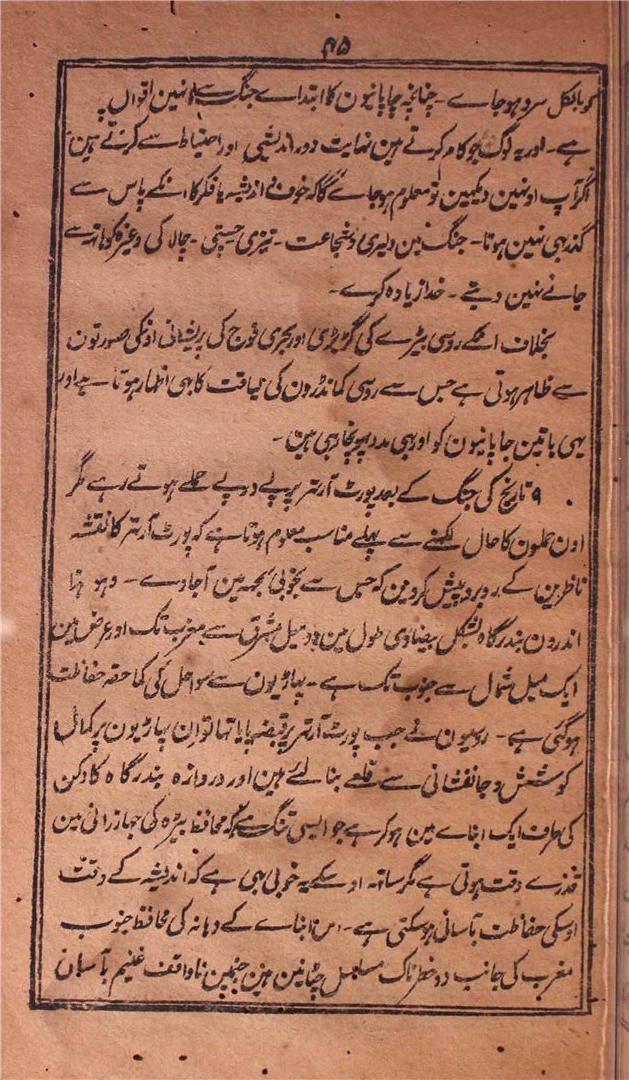 ۴۵
کو بالکل سرد ہوجاے ۔ چنانچہ جاپانیون کا ابتداے جنگ سے انہین اقوال پہ
ہے ۔ اور یہ لوگ جو کام کرتے ہین نہایت دور اندیشی اور احتیاط سے کرتے ہین
اگر آپ اونہین دیکہین تو معلوم ہوجاے گا کہ خوف اندیشہ یا فکر کا انکے پاس سے
گذر ہی نہین ہوتا ۔ جنگ مین دلیری و شجاعت ۔ تیزی چستی ۔ چالاکی وغیرہ کو ہاتہہ سے
جانے نہین دیتے ۔ خدا زیادہ کرے ۔
بخلاف اسکے روسی بیڑے کی گڑبڑی اور بحری فوج کی پریشانی اونکی صورتون
سے ظاہر ہوتی ہے جس سے روسی کمانڈرون کی لیاقت کا بہی اظہار ہوتا ہے اور
یہی باتین جاپانیون کو اور بہی مدد پہونچا رہی ہین ۔
۹ تاریخ کی جنگ کے بعد پورٹ آرتہر پر پے در پے حملے ہوتے رہے مگر
اون حملون کا حال لکہنے سے پہلے مناسب معلوم ہوتا ہے کہ پورٹ آرتہر کا نقشہ
ناظرین کے روبرو پیش کرون کہ جس سے بخوبی سمجہہ مین آجاوے ۔ وہو ہذا
اندرون بندرگاہ بشکل بیضاوی طول مین دو میل مشرق سے مغرب تک اور عرض مین
ایک میل شمال سے جنوب تک ہے ۔ پہاڑیون سے سواحل کی کماحقہ حفاظت
ہوگئی ہے ۔ روسیون نے جب پورٹ آرتہر پر قبضہ پایا تہا تو ان پہاڑیون پر کمال
کوشش و جانفشانی سے قلعے بنا لئے ہین اور دروازہ بندرگاہ کا دکن
کی طرف ایک ابناے مین ہوکر ہے جو ایسی تنگ ہے کہ محافظ بیڑہ کی جہازرانی مین
قدرے دقت ہوتی ہے مگر ساتہہ اوسکے یہ خوبی بہی ہے کہ اندیشہ کے وقت
اوسکی حفاظت بآسانی ہوسکتی ہے ۔ اس ابناے کے دہانہ کی محافظ جنوب
مغرب کی جانب دو خطرناک مسلسل چٹانین ہین جنہین ناواقف غنیم بآسان